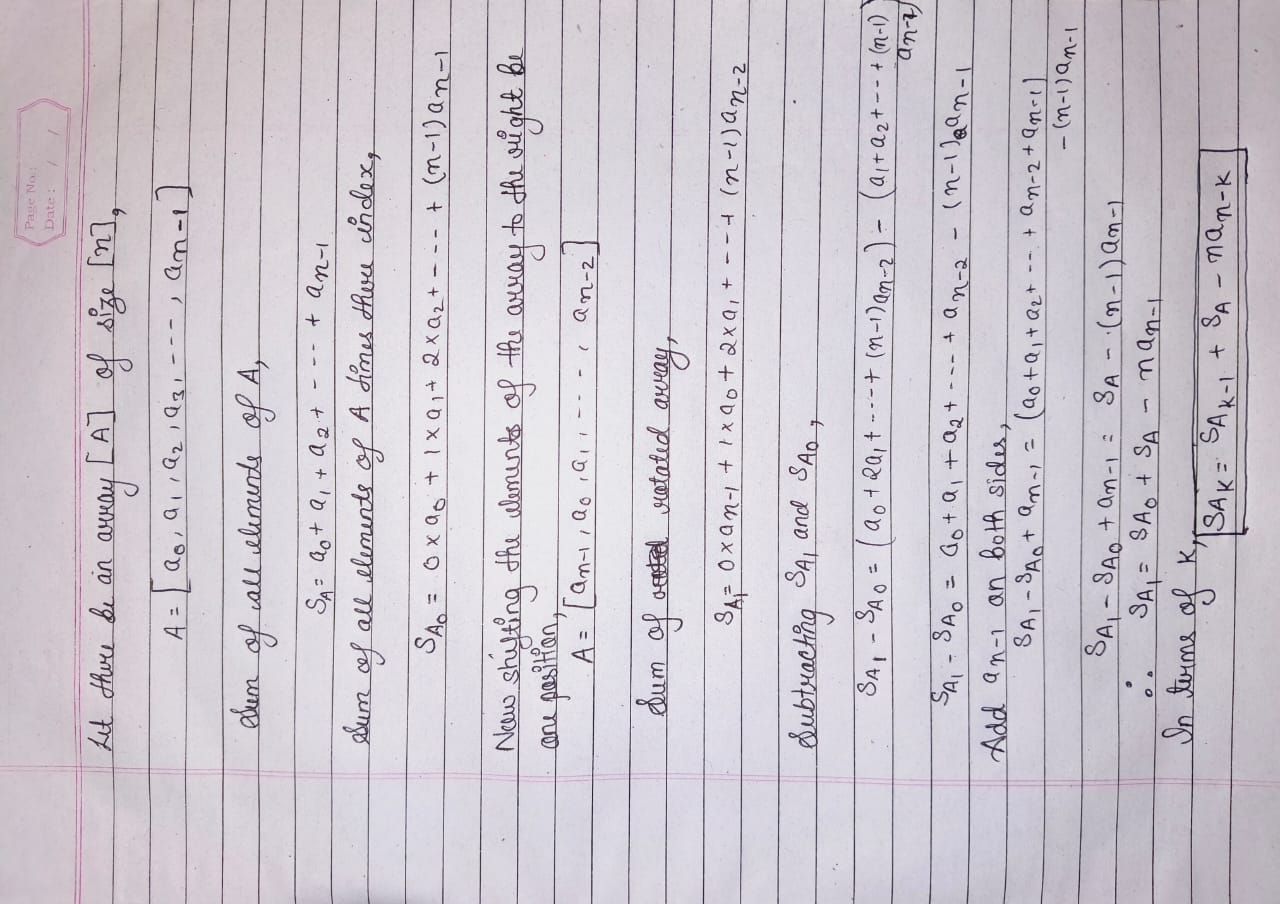 Page No.:
Date: / /
Let there be an array [A] of size [n],
A = [a0, a1, a2, a3, ---, an-1]
Sum of all elements of A,
SA = a0 + a1 + a2 + - --- + an-1
Sum of all elements of A times there index,
SA0 = 0 x a0 + 1 x a1 + 2 x a2 + - --- + (n-1) an-1
Now shifting the elements of the array to the right be
one position,
A = [an-1, a0, a1, ----, an-2]
Sum of rotated array,
SA1 = 0 x an-1 + 1 x a0 + 2 x a1 + - -- + (n-1) an-2
Subtracting SA1 and SA0,
SA1 - SA0 = (a0 + 2a1 + ---- + (n-1) an-2) - (a1 + a2 + --- + (n-1)
an-2)
SA1 - SA0 = a0 + a1 + a2 + --- + an-2 - (n-1) an-1
Add an-1 on both sides,
SA1 - SA0 + an-1 = (a0 + a1 + a2 + --- + an-2 + an-1)
- (n-1) an-1
SA1 - SA0 + an-1 = SA - (n-1) an-1
∴ SA1 = SA0 + SA - nan-1
In terms of K,
SAK = SAK-1 + SA - nan-K